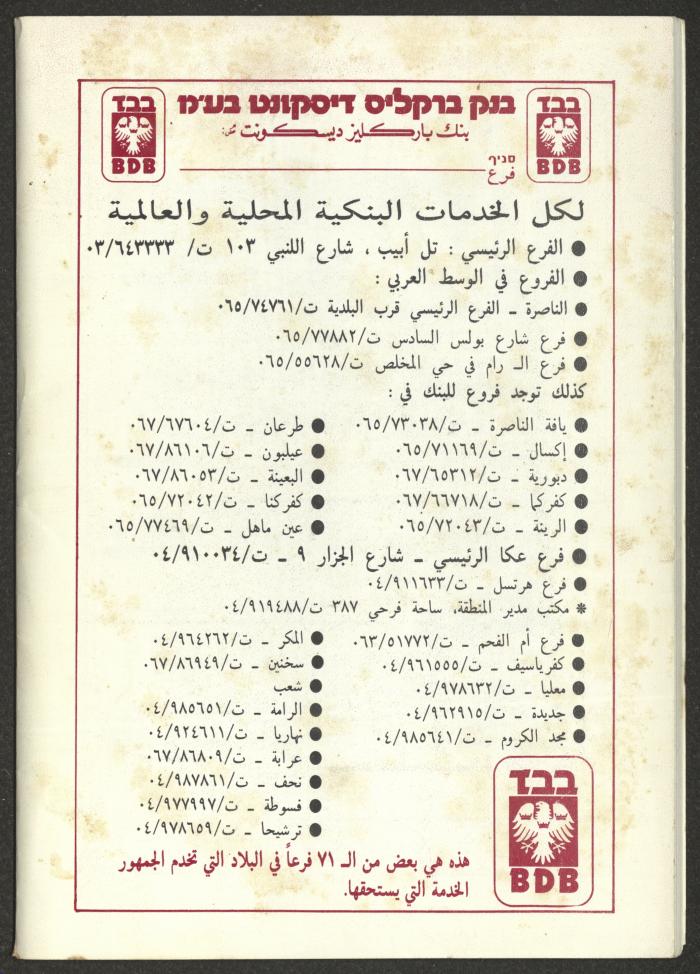 בבד
BDB
בנק ברקליס דיסקונט בע"מ
بنك باركليز ديسكونت
בבד
BDB
סניף
فرع
لكل الخدمات البنكية المحلية والعالمية
● الفرع الرئيسي : تل أبيب ، شارع اللنبي ١٠٣ ت/ ٠٣/٦٤٣٣٣٣
● الفروع في الوسط العربي :
● الناصرة ــ الفرع الرئيسي قرب البلدية ت/٠٦٥/٧٤٧٦١
● فرع شارع بولس السادس ت/٠٦٥/٧٧٨٨٢
● فرع الـ رام في حي المخلص ت/٠٦٥/٥٥٦٢٨
كذلك توجد فروع للبنك في :
● يافة الناصرة ــ ت/٠٦٥/٧٣٠٣٨
● إكسال ــ ت/٠٦٥/٧١١٦٩
● دبورية ــ ت/٠٦٧/٦٥٣١٢
● كفركما ــ ت/٠٦٧/٦٦٧١٨
● الرينة ــ ت/٠٦٥/٧٢٠٤٣
● طرعان ــ ت/٠٦٧/٦٧٦٠٤
● عيلبون ــ ت/٠٦٧/٨٦١٠٦
● البعينة ــ ت/٠٦٧/٨٦٠٥٣
● كفركنا ــ ت/٠٦٥/٧٢٠٤٢
● عين ماهل ــ ت/٠٦٥/٧٧٤٦٩
● فرع عكا الرئيسي ــ شارع الجزار ٩ ــ ت/٠٤/٩١٠٠٣٤
● فرع هرتسل ــ ت/٠٤/٩١١٦٣٣
* مكتب مدير المنطقة، ساحة فرحي ٣٨٧ ت/٠٤/٩١٩٤٨٨
● فرع أم الفحم ــ ت/٠٦٣/٥١٧٧٢
● كفرياسيف ــ ت/٠٤/٩٦١٥٥٥
● معليا ــ ت/٠٤/٩٧٨٦٣٢
● جديدة ــ ت/٠٤/٩٦٢٩١٥
● مجد الكروم ــ ت/٠٤/٩٨٥٦٤١
● المكر ــ ت/٠٤/٩٦٤٢٦٢
● سخنين ــ ت/٠٦٧/٨٦٩٤٩
● شعب
● الرامة ــ ت/٠٤/٩٨٥٦٥١
● نهاريا ــ ت/٠٤/٩٢٤٦١١
● عرابة ــ ت/٠٦٧/٨٦٨٠٩
● نحف ــ ت/٠٤/٩٨٧٨٦١
● فسوطة ــ ت/٠٤/٩٧٧٩٩٧
● ترشيحا ــ ت/٠٤/٩٧٨٦٥٩
בבד
BDB
هذه هي بعض من الـ ٧١ فرعاً في البلاد التي تخدم الجمهور
الخدمة التي يستحقها.